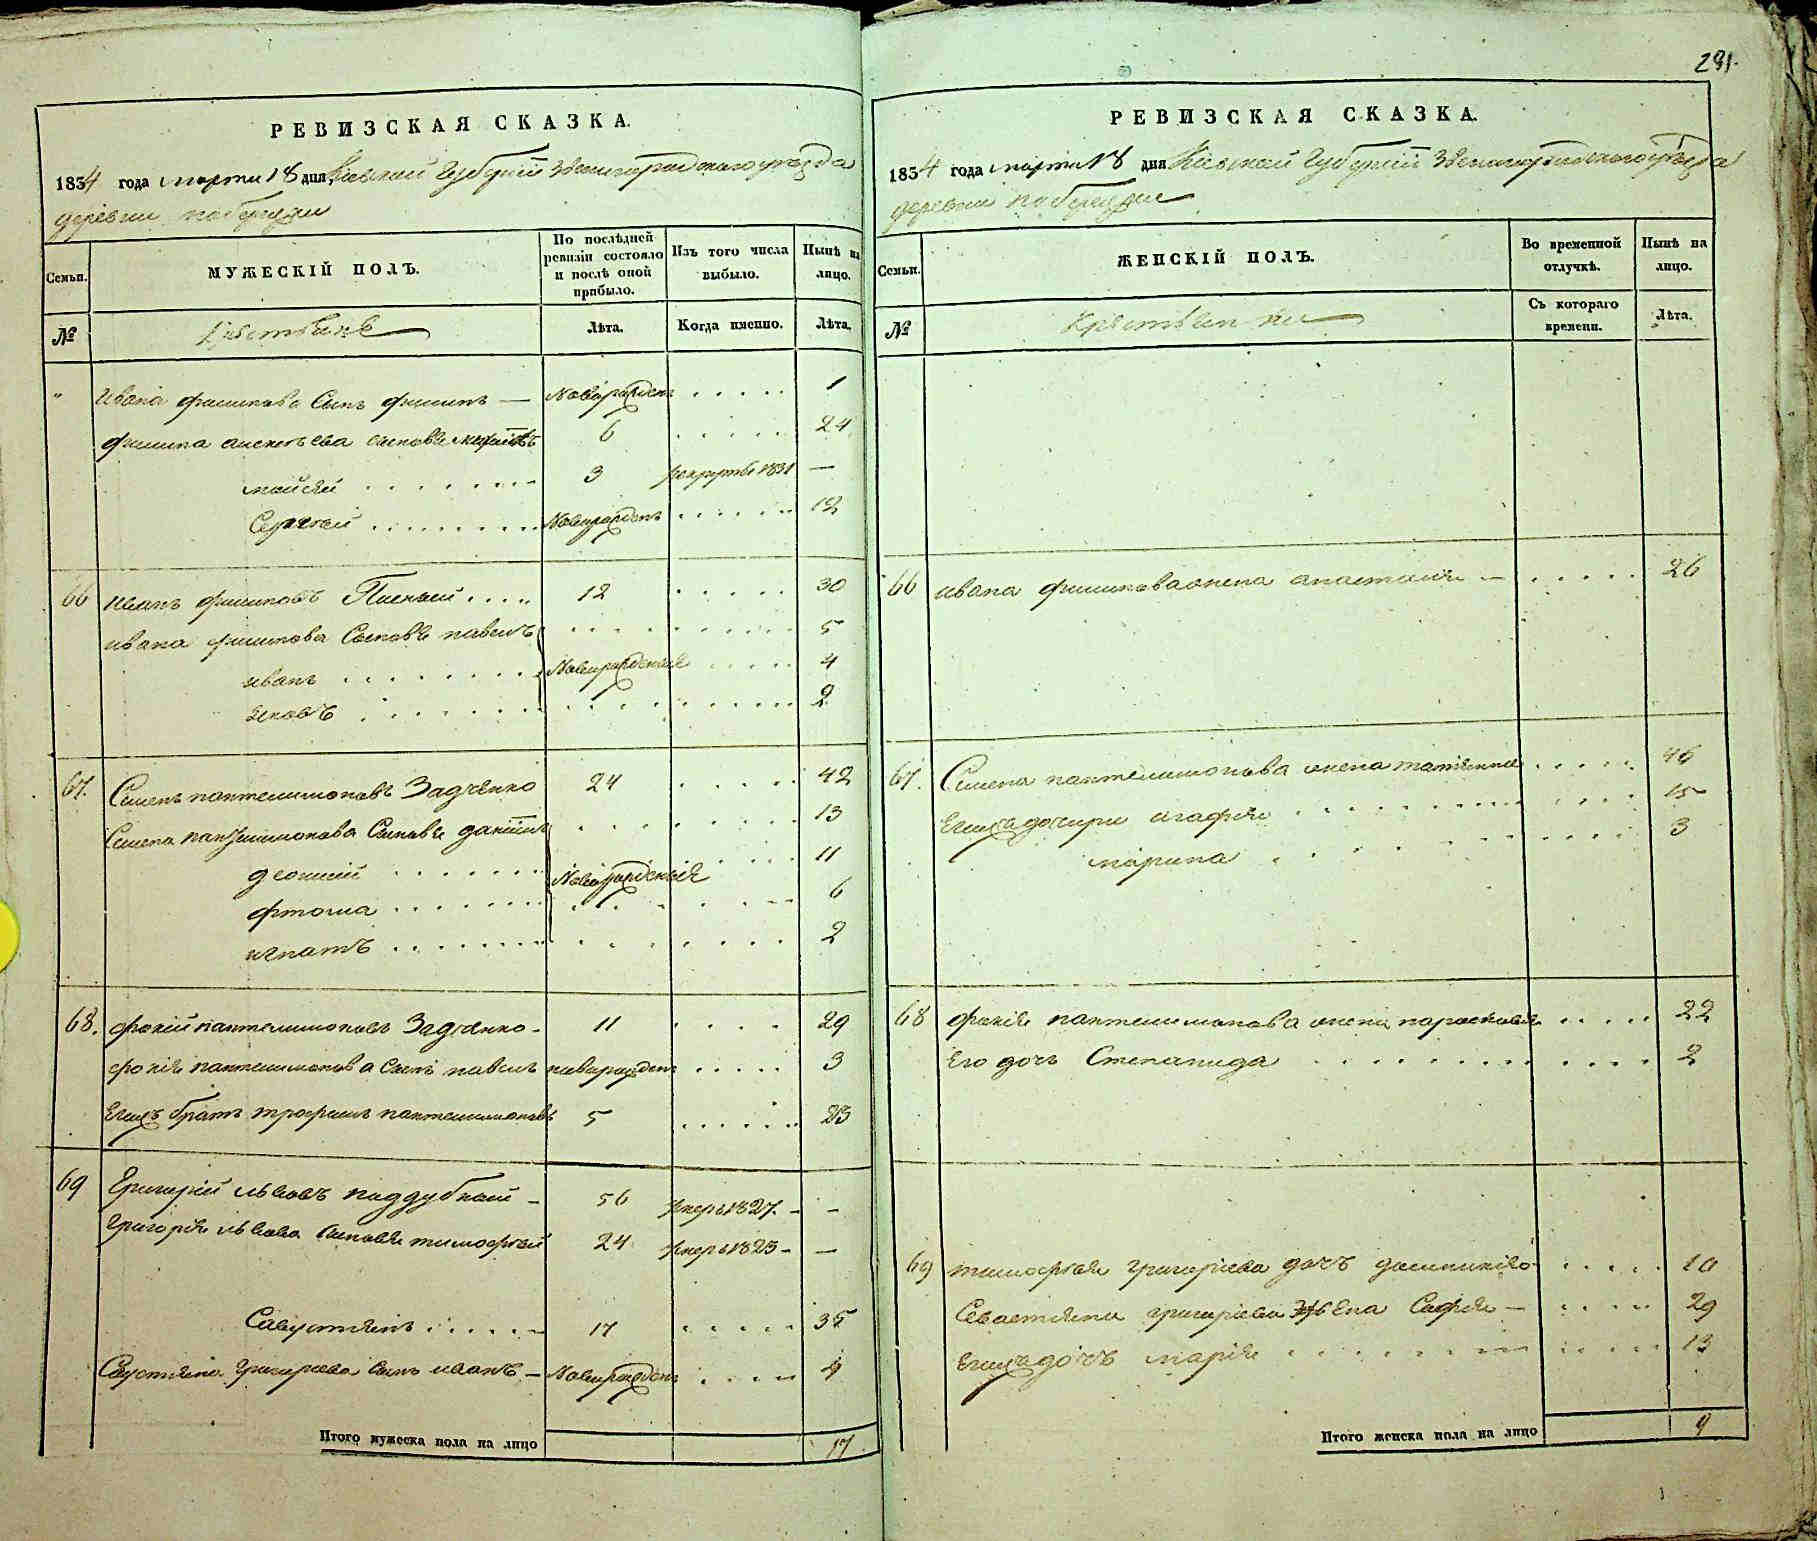 291.
РЕВИЗСКАЯ СКАЗКА.
1834 года марта 18 дня, Киевской Губерніи Звенигородскаго уезда
деревни побережки
Семьи.
МУЖЕСКІЙ ПОЛЪ.
По послѣдней ревизіи состояло и послѣ оной прибыло.
Изъ того числа выбыло.
Нынѣ на лицо.
№
Крестьяне
Лѣта.
Когда имянно.
Лѣта.
" Ивана филипова Сынъ филипъ — Новорожденъ 1
филипа алексеева сыновья 6 24
мойсей 3 рекрутъ 1831 —
Сергей Новорожденъ 12
66 иванъ филиповъ 12 30
ивана филипова Сыновья павелъ 5
иванъ Новорожденные 4
яковъ 2
67. Семенъ пантелимоновъ Задченко 24 42
Семена пантелимонова Сыновья данійлъ 13
леонтій Новорожденыя 11
фтома 6
игнатъ 2
68. фокій пантелимоновъ Задченко - 11 29
фокія пантелимонова Сынъ павелъ новорожденъ 3
Егожъ братъ трофимъ пантелимоновъ 5 23
69 Григорій львовъ поддубной - 56 умеръ 1827. - -
Григорія львова Сыновья тимофей 24 умеръ 1825 - —
Савустянъ 17 35
Савустяна григориева сынъ иванъ - Новорожденъ 4
Итого мужеска пола на лицо 17
РЕВИЗСКАЯ СКАЗКА.
1834 года марта 18 дня Киевской Губерніи Звенигородскаго уезда
деревни побережки
Семьи.
ЖЕНСКІЙ ПОЛЪ.
Во временной отлучкѣ.
Нынѣ на лицо.
№
Крестьянки
Съ котораго времени.
Лѣта.
66 ивана филипова жена анастасия - 26
67. Семена пантелимонова жена татіянна 46
Егожъ дочери агафія 15
марина 3
68 фокія пантелимонова жена парасковія 22
Его дочь Степанида 2
69 тимофея григоріева дочь 10
Севастяна григоріева жена Софія - 29
Егожъ дочъ марія 13
Итого женска пола на лицо 9